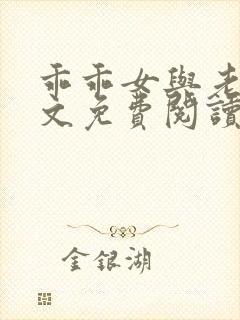 乖乖女與老
文免費閱讀
金銀湖